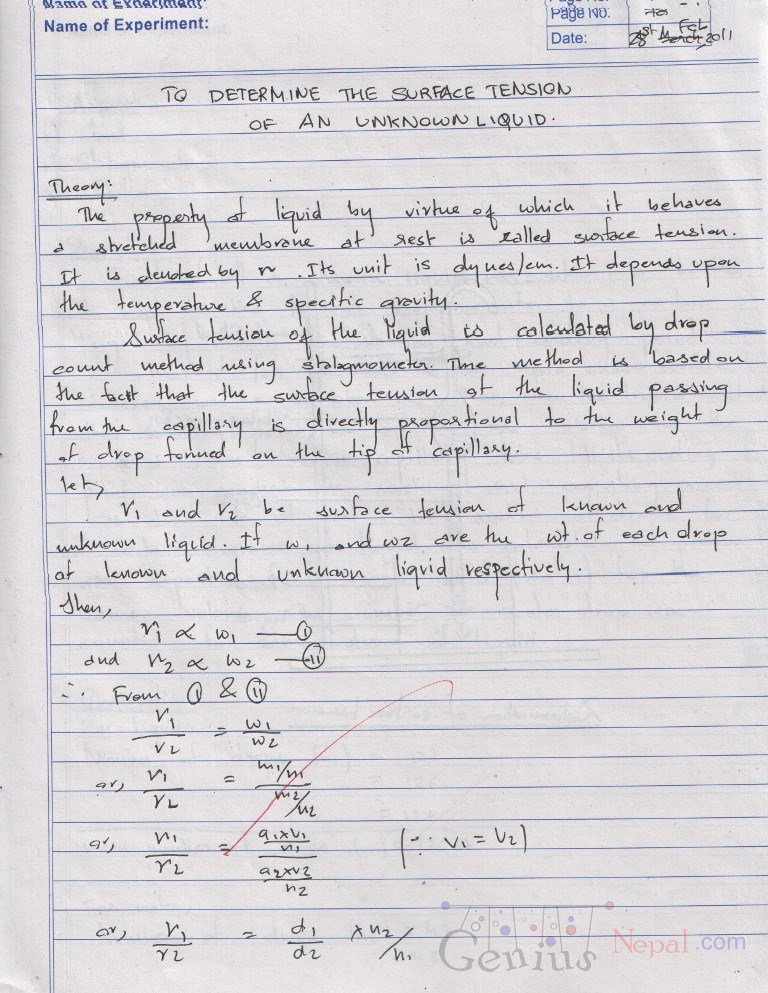 Name of Experiment:
Name of Experiment:
Page No:
Date: 2011
TO DETERMINE THE SURFACE TENSION
OF AN UNKNOWN LIQUID.
Theory:
The property of liquid by virtue of which it behaves
a stretched membrane at rest is called surface tension.
It is denoted by r. Its unit is dynes/cm. It depends upon
the temperature & specific gravity.
Surface tension of the liquid is calculated by drop
count method using stalagmometer. The method is based on
the fact that the surface tension of the liquid passing
from the capillary is directly proportional to the weight
of drop formed on the tip of capillary.
let,
r₁ and r₂ be surface tension of known and
unknown liquid. If w₁ and w₂ are the wt. of each drop
of known and unknown liquid respectively.
Then,
r₁ ∝ w₁ — (i)
and r₂ ∝ w₂ — (ii)
∴ From (i) & (ii)
r₁/r₂ = w₁/w₂
or, r₁/r₂ = (m₁/n₁)/(m₂/n₂)
or, r₁/r₂ = (d₁xv₁/n₁)/(d₂xv₂/n₂) (∵ v₁ = v₂)
or, r₁/r₂ = d₁/d₂ x n₂/n₁
Genius Nepal.com